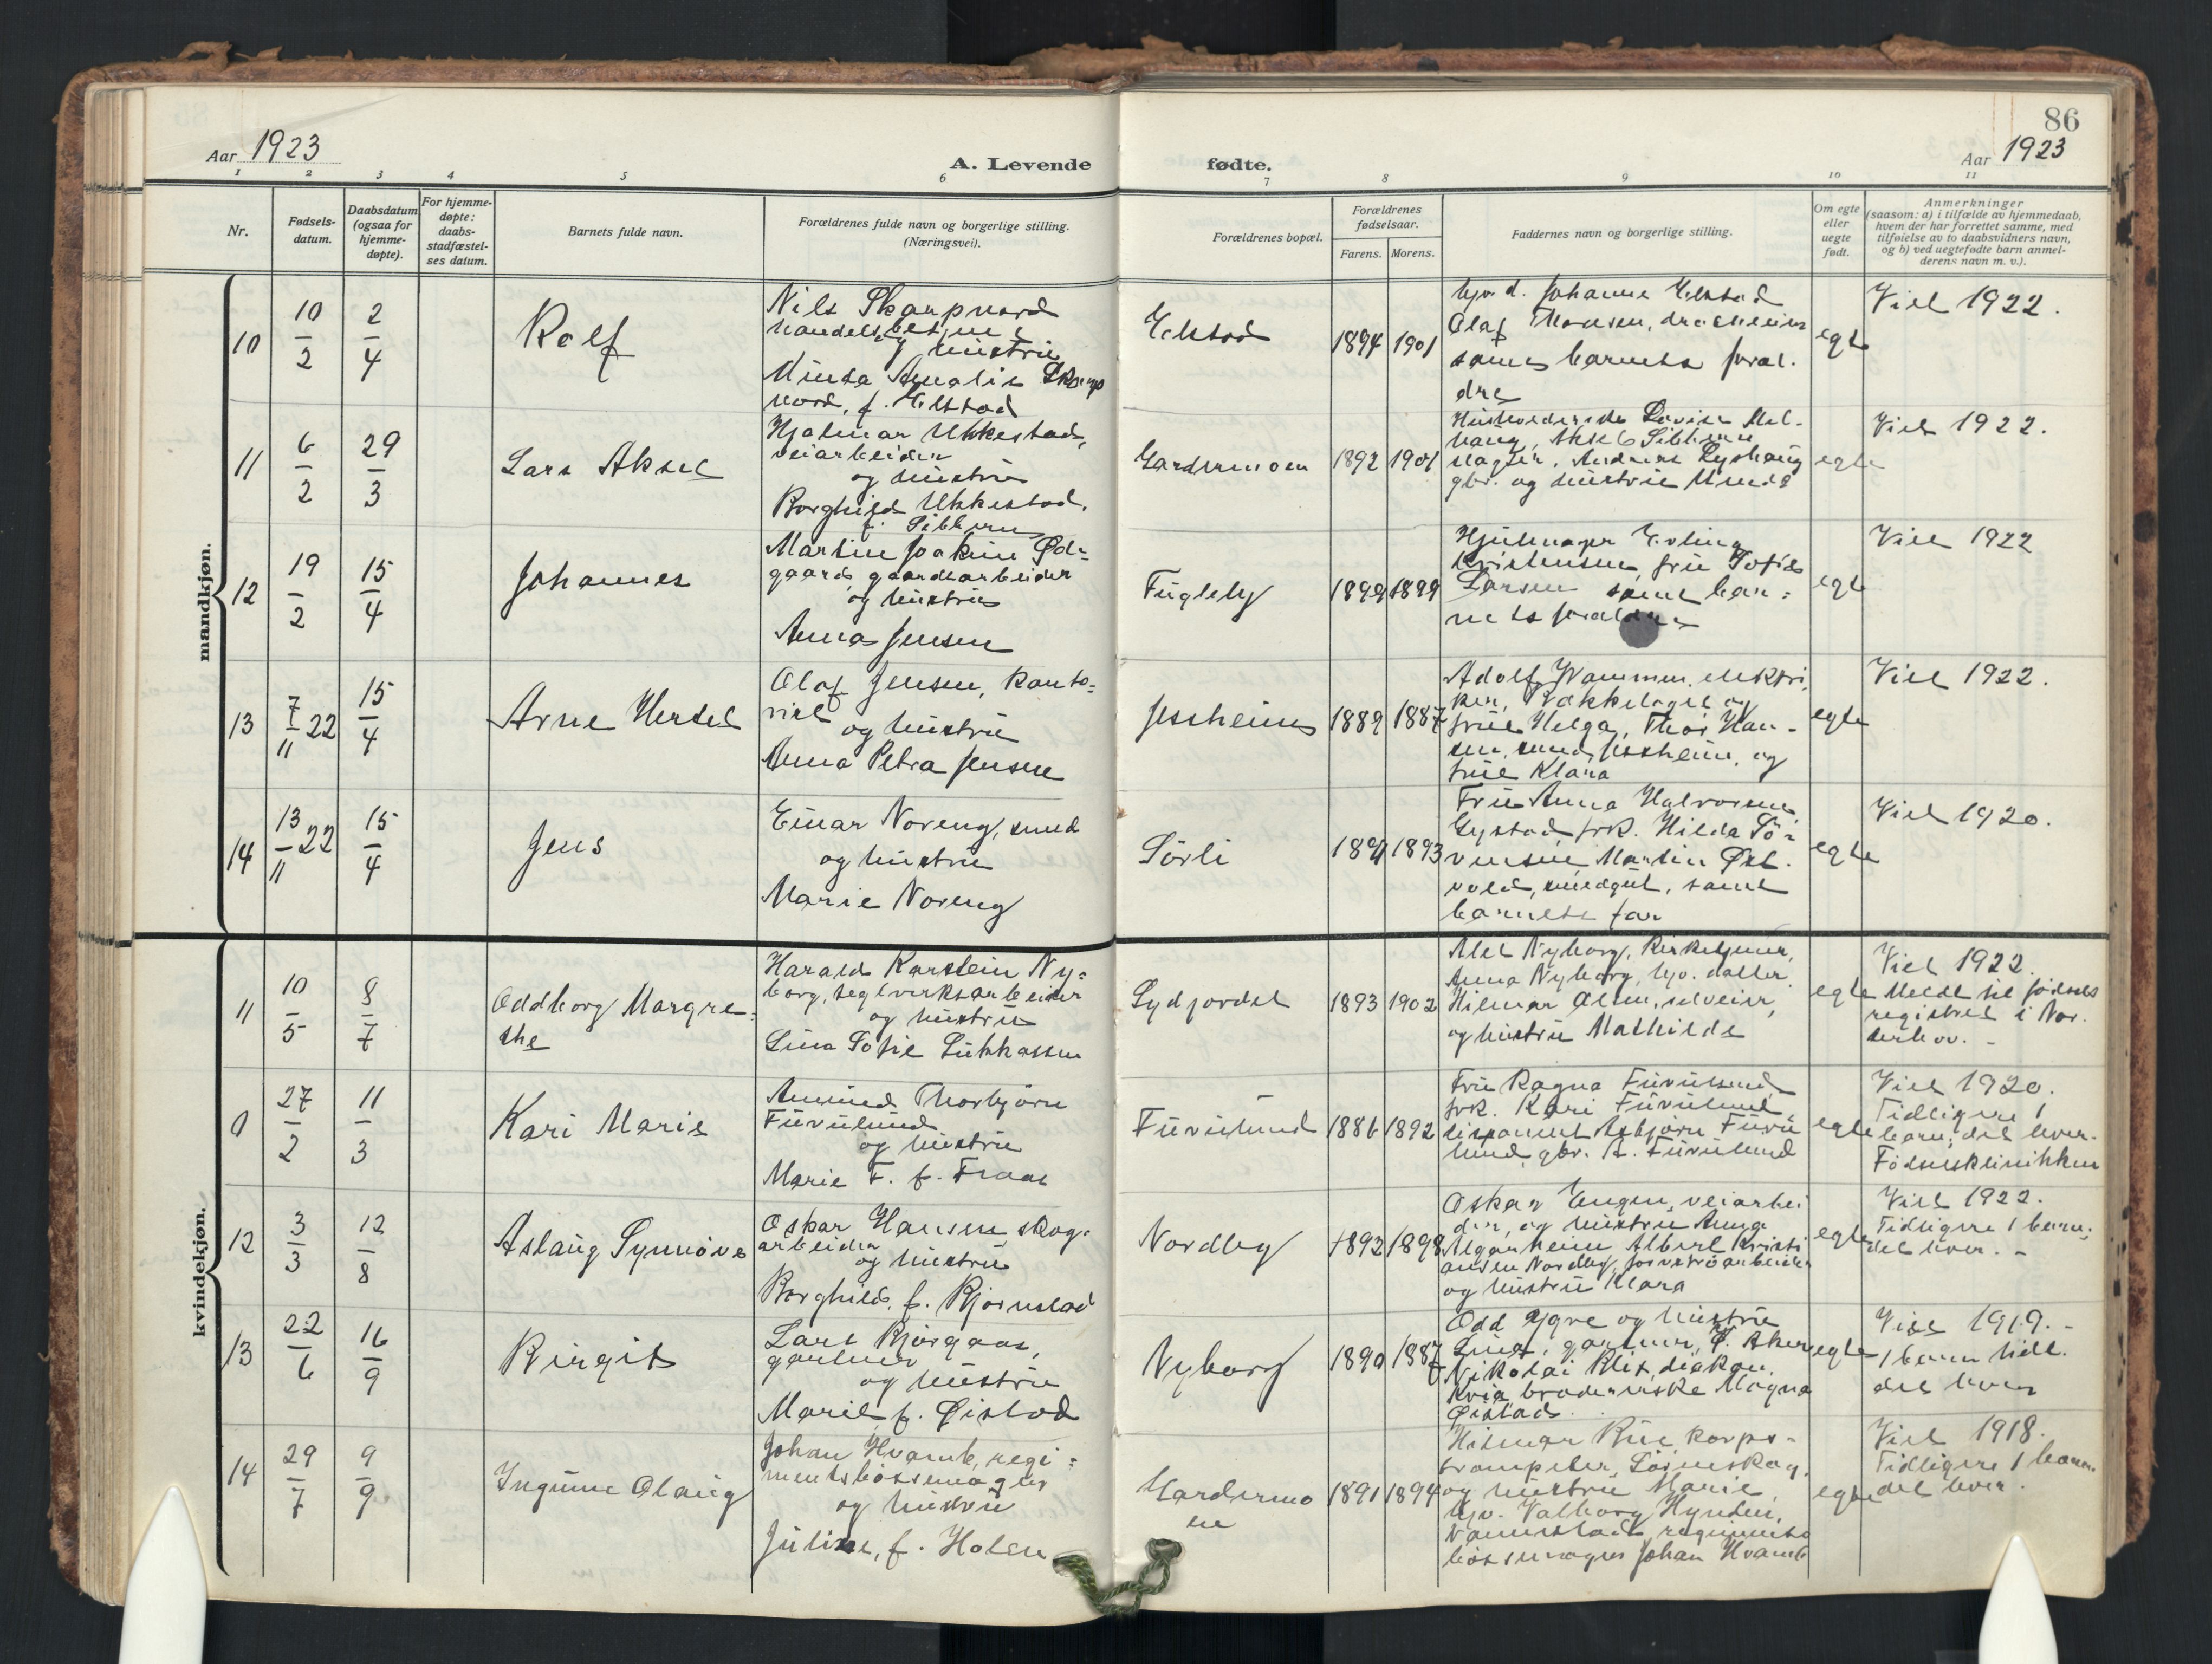 86
Aar 1923
A. Levende
fødte.
Aar 1923
1 2 3 4 5 6 7 8 9 10 11
Nr.
Fødsels-
datum.
Daabsdatum
(ogsaa for
hjemme-
døpte).
For hjemme-
døpte:
daabs-
stadfæstel-
ses datum.
Barnets fulde navn.
Forældrenes fulde navn og borgerlige stilling.
(Næringsvei).
Forældrenes bopæl.
Forældrenes
fødselsaar.
Farens. Morens.
Faddernes navn og borgerlige stilling.
Om egte
eller
uegte
født.
Anmerkninger
(saasom: a) i tilfælde av hjemmedaab,
hvem der har forrettet samme, med
tilføielse av to daabsvidners navn,
og b) ved uegtefødte barn anmel-
derens navn m. v.).
mandkjøn.
10
10/2
2/4
Rolf
Nils Skarpnord
og hustru
Minda Amalie Skarp
nord, f. Elstad
Elstad
1894 1901
Johanne Elstad
Olaf
samt barnets foræl-
dre
egte
Viet 1922.
11
6/2
29/3
Lars Aksel
Hjalmar Ukkestad,
veiarbeider
og hustru
Borghild Ukkestad,
f. Sibbern
Gardermoen
1892 1901
Aksel Sibbern
og hustru
egte
Viet 1922.
12
19/2
15/4
Johannes
Martin Joakim Øde-
gaard, gaardsarbeider
og hustru
Anna Jensen
Fugleby
1899 1899
Hjulmager Erling
Kristensen, fru Sofie
Larsen samt bar-
nets forældre
egte
Viet 1922
13
7/11 22
15/4
Arne Hersel
Olaf Jensen, konto-
rist
og hustru
Anna Petra Jensen
Jessheim
1889 1887
Adolf Wammen, elektri
ker, og
frue Helga, Thor Han-
sen, smed, Jessheim, og
frue Klara
egte
Viet 1922.
14
13/11 22
15/4
Jens
Einar Noreng, smed
og hustru
Marie Noreng
Sörli
1891 1893
Fru Anna Halvorsen,
Gystad, frk. Hilda Sö-
rensen, Martin Øst-
vold, smedgut, samt
barnets far
egte
Viet 1920.
kvindekjøn.
11
10/5
8/7
Oddborg Margre-
the
Harald Karstein Ny-
borg, teglverksarbeider
og hustru
Lina Sofie Lukkassen
Lydjordet
1893 1902
Nyborg, kirketjener,
Anna Nyborg, hjv. datter,
Hilmar selveier,
og hustru Mathilde
egte
Viet 1922.
Meldt til fødsels
registret i Nor-
derhov. -
9
27/2
11/3
Kari Marie
Amund Thorbjørn
Furulund
og hustru
Marie F. f. Fraas
Furulund
1886 1892
Fru Ragna Furulund,
frk. Kari Furulund,
disponent Asbjørn Furu
lund, gbr. A. Furulund
egte
Viet 1920.
Tidligere 1
barn; det lever.
Fødselsklinikken
12
3/3
12/8
Aslaug Synnöve
Oskar Hansen skog-
arbeider
og hustru
Borghild, f. Bjørnstad
Nordby
1892 1898
Oskar Engen, veiarbei
der, og hustru Anna
Algarheim Albert Kristi
ansen Nordby, torvströarbeider
og hustru Klara
egte
Viet 1922.
Tidligere 1 barn;
det lever. -
13
22/6
16/9
Birgit
Lars Bjørgaas,
gartner
og hustru
Marie, f. Øistad
Nyborg
1890 1887
Odd Ygre og hustru
gartner, Ø. Aker
Nikolai Klix, diakon,
Magna
Øistad.
egte
Viet 1919. -
1 barn tidl.
det lever
14
29/7
9/9
Ingunn Olaug
Johan Hvamb, regi-
mentsbøssemager
og hustru
Juline, f. Holen
Gardermo
en
1891 1894
Hilmar Rue, korps-
trompeter, Lörenskog,
og hustru Marie,
hjv. Valborg Hynden,
regiments
bøssemager Johan Hvamb
egte
Viet 1918.
Tidligere 1 barn.
det lever.